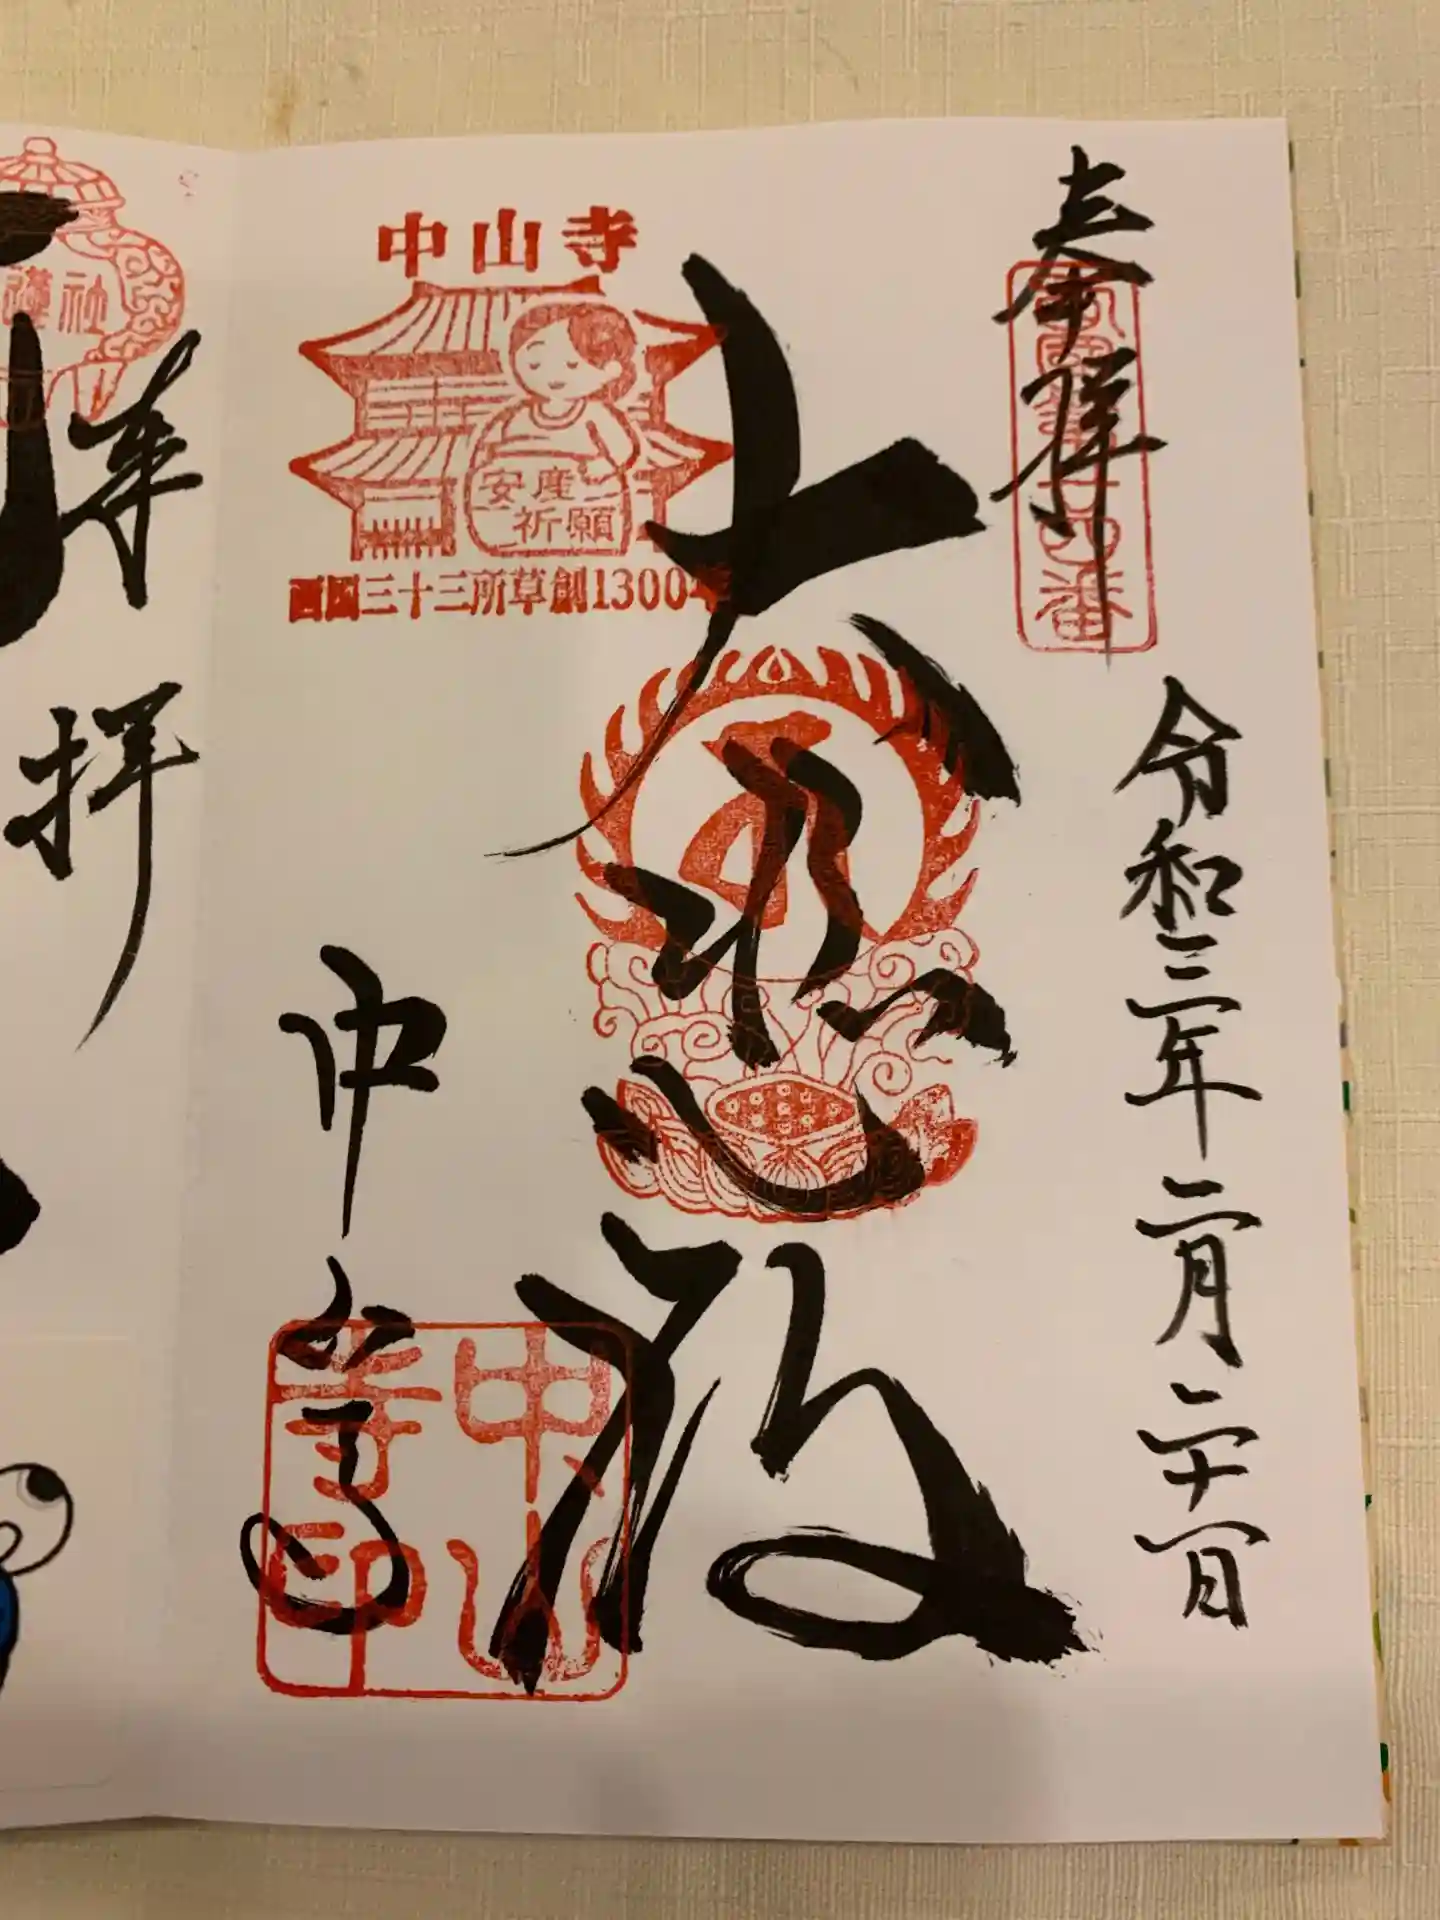 奉拝
西國第廿四番
令和三年二月二十一日
大悲殿
中山寺
安産
祈願
西国三十三所草創1300年
中山寺
中山寺印
奉拝
社